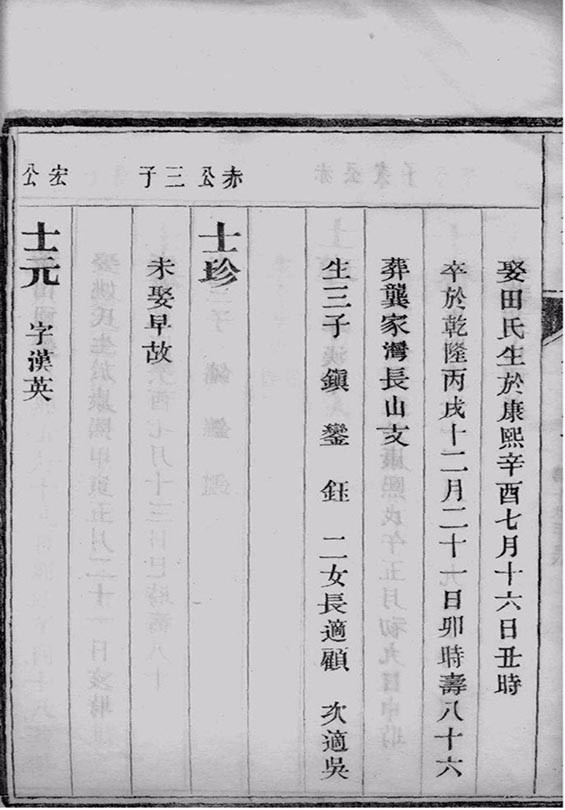 娶田氏生於康熙辛酉七月十六日丑時
卒於乾隆丙戌十二月二十一日卯時壽八十六
葬龔家灣長山支
生三子 鎮 鑾 鈺 二女長適顧 次適吳
赤公三子
士珍
未娶早故
宏公
士元 字漢英